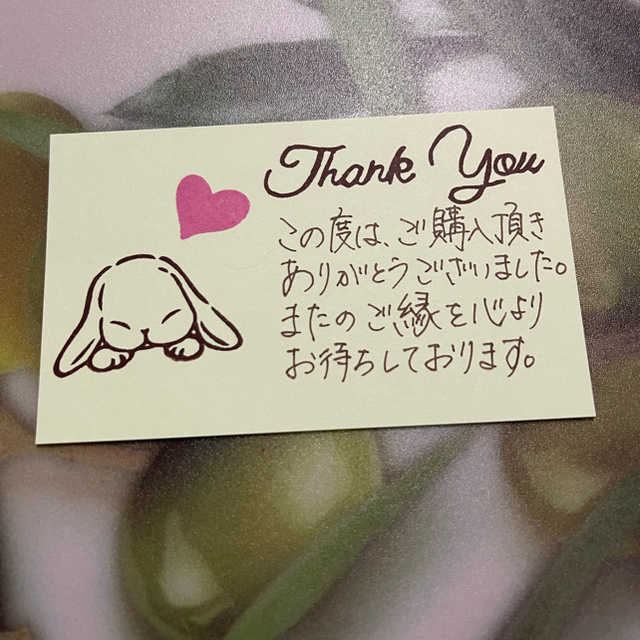 Thank You
この度は、ご購入頂き
ありがとうございました。
またのご縁を心より
お待ちしております。